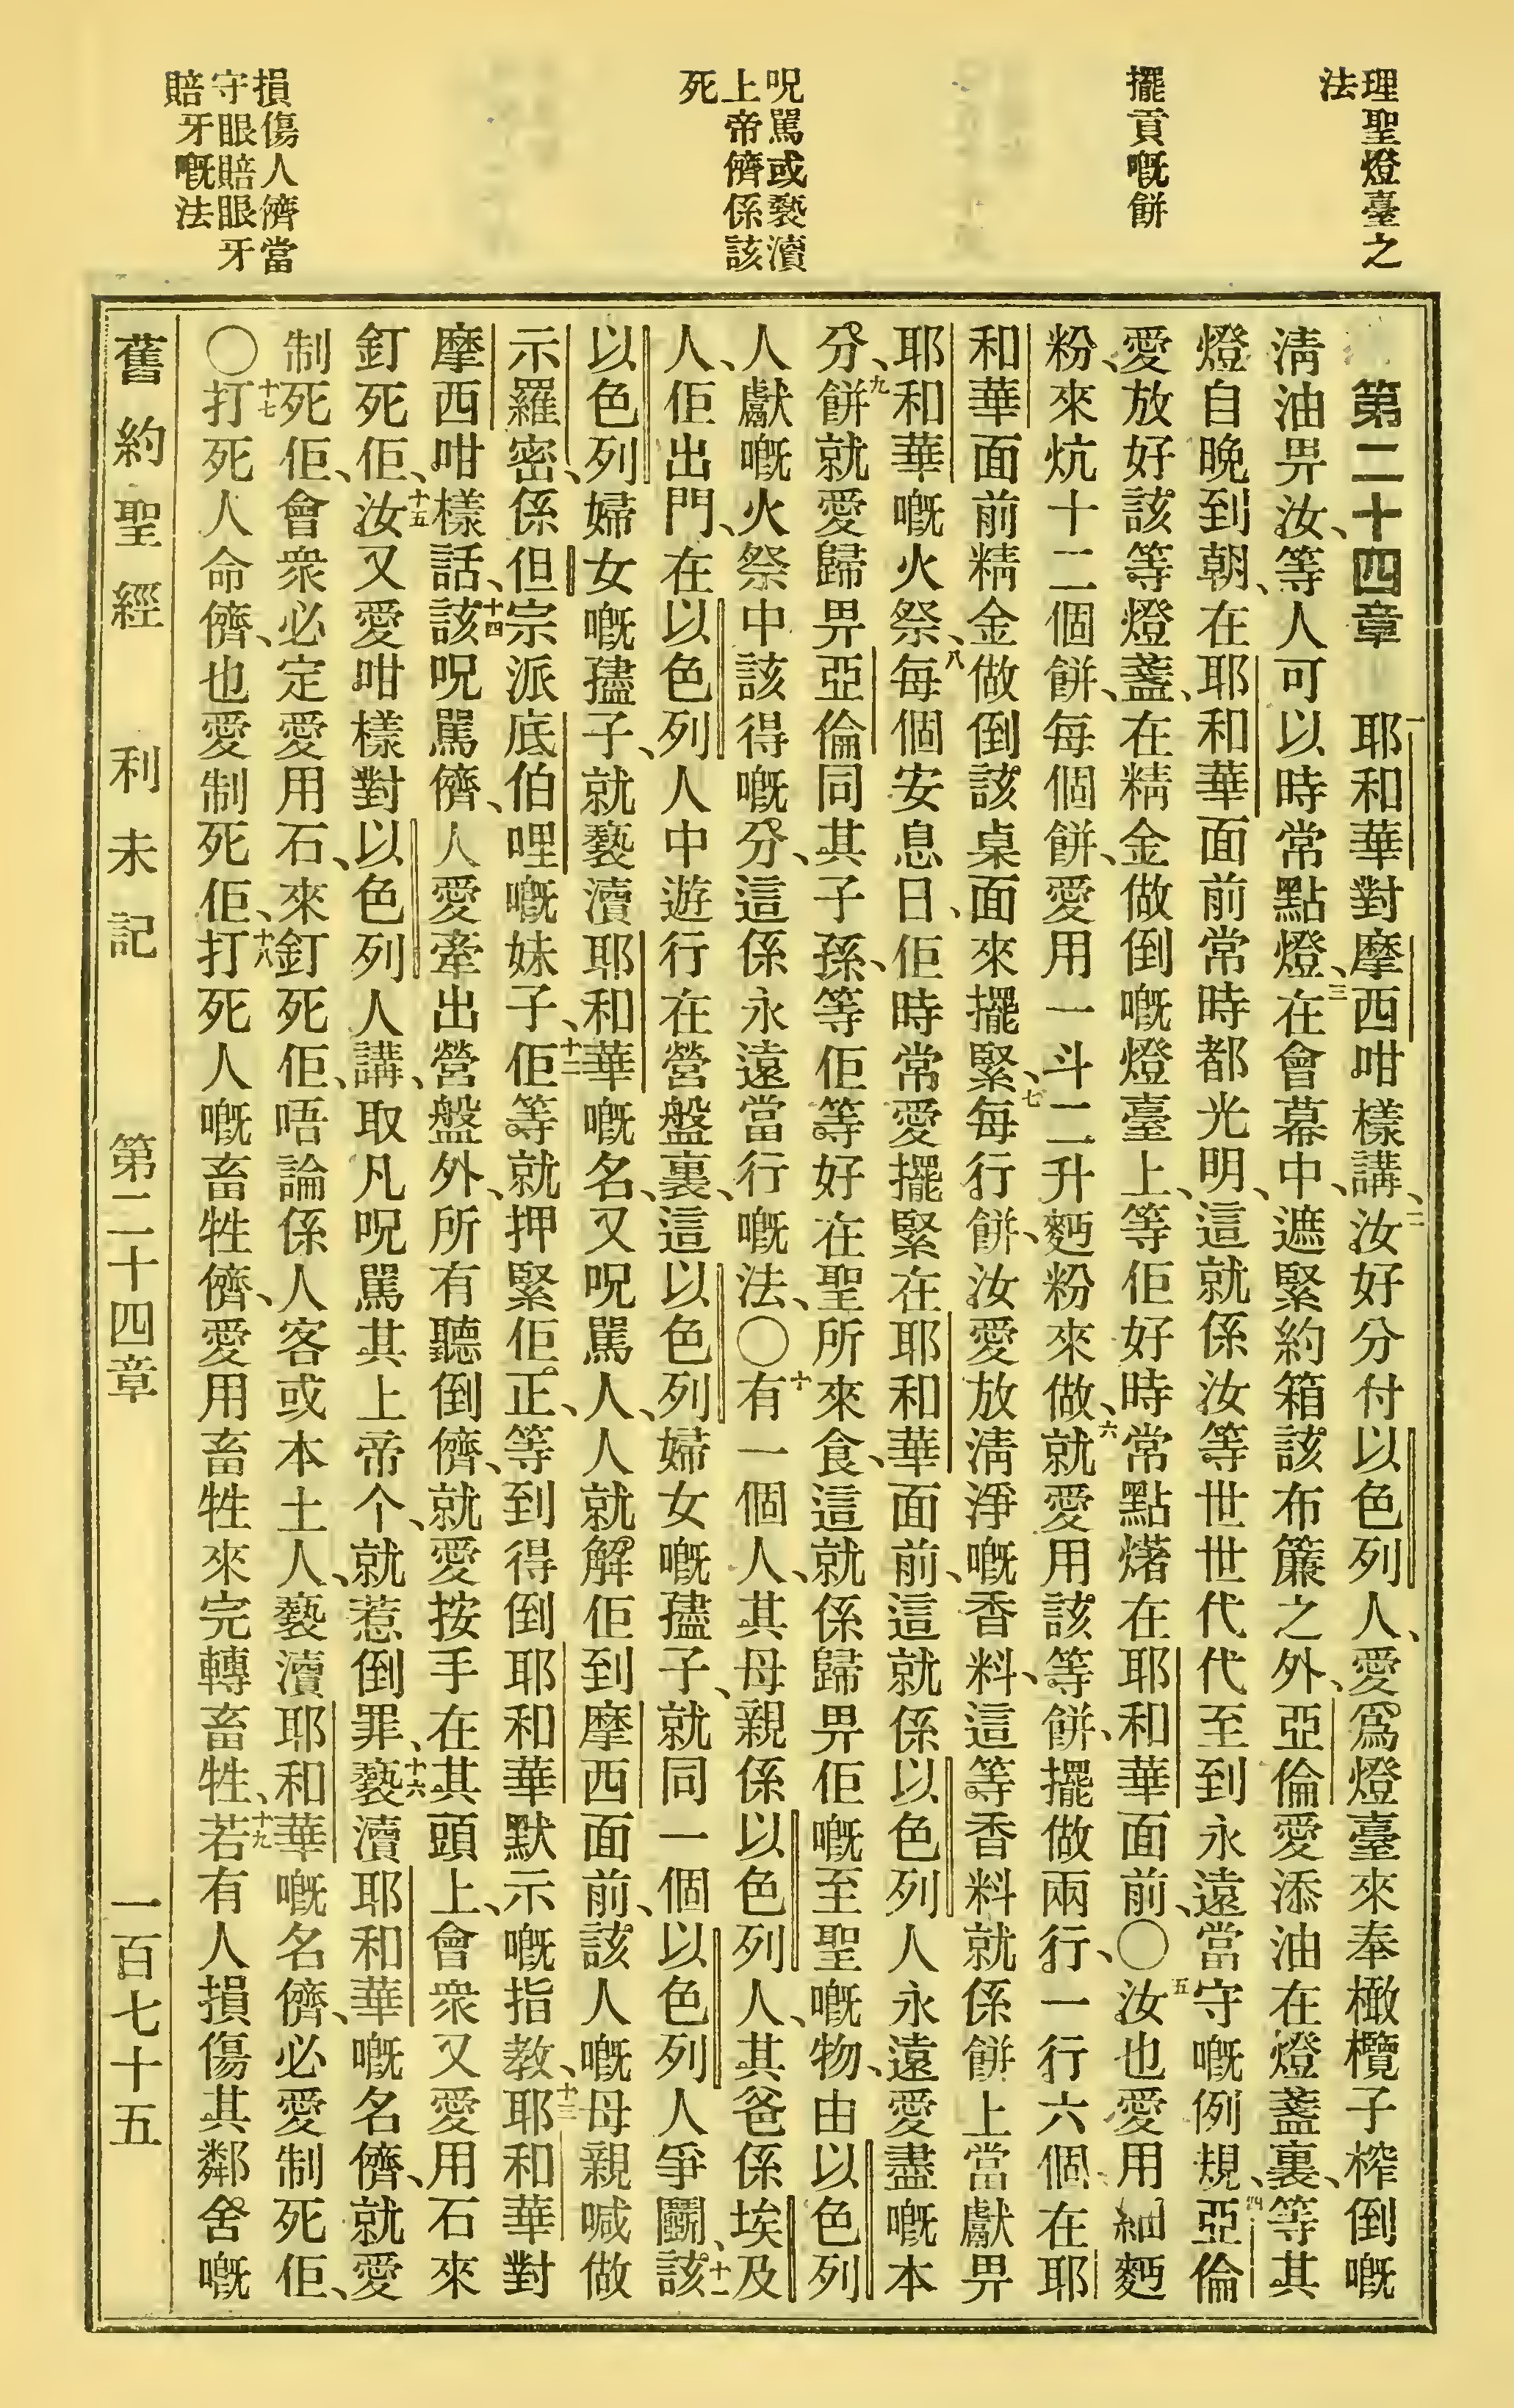 理聖燈臺之
法
擺貢嘅餅
呪駡或褻瀆
上帝儕係該
死
損傷人儕當
守眼賠眼牙
賠牙嘅法
第二十四章 一耶和華對摩西咁樣講、二汝好分付以色列人、愛爲燈臺來奉橄欖子榨倒嘅
淸油畀汝、等人可以時常點燈、三在會幕中、遮緊約箱該布簾之外、亞倫愛添油在燈盞裏、等其
燈自晚到朝、在耶和華面前常時都光明、這就係汝等世世代代至到永遠當守嘅例規、四亞倫
愛放好該等燈盞、在精金做倒嘅燈臺上、等佢好時常點𤊶在耶和華面前、〇五汝也愛用細麪
粉、來炕十二個餅、每個餅、愛用一斗二升麪粉來做、六就愛用該等餅、擺做兩行、一行六個、在耶
和華面前精金做倒該桌面來擺緊、七每行餅、汝愛放淸淨嘅香料、這等香料就係餅上當獻畀
耶和華嘅火祭、八每個安息日、佢時常愛擺緊在耶和華面前、這就係以色列人永遠愛盡嘅本
分、九餅就愛歸畀亞倫同其子孫、等佢等好在聖所來食、這就係歸畀佢嘅至聖嘅物、由以色列
人獻嘅火祭中該得嘅分、這係永遠當行嘅法、〇十有一個人、其母親係以色列人、其爸係埃及
人、佢出門、在以色列人中遊行在營盤裏、這以色列婦女嘅孻子、就同一個以色列人爭鬭、十一該
以色列婦女嘅孻子、就褻瀆耶和華嘅名、又呪駡人、人就解佢到摩西面前、該人嘅母親喊做
示羅密、係但宗派底伯哩嘅妹子、十二佢等就押緊佢、正等到得倒耶和華默示嘅指教、十三耶和華對
摩西咁樣話、十四該呪駡儕、人愛牽出營盤外、所有聽倒儕、就愛按手在其頭上、會衆又愛用石來
釘死佢、十五汝又愛咁樣對以色列人講、取凡呪駡其上帝个、就惹倒罪、十六褻瀆耶和華嘅名儕、就愛
制死佢、會衆必定愛用石、來釘死佢、唔論係人客或本土人、褻瀆耶和華嘅名儕、必愛制死佢、
〇十七打死人命儕、也愛制死佢、十八打死人嘅畜牲儕、愛用畜牲來完轉畜牲、十九若有人損傷其鄰舍嘅
舊約聖經 利未記 第二十四章 一百七十五